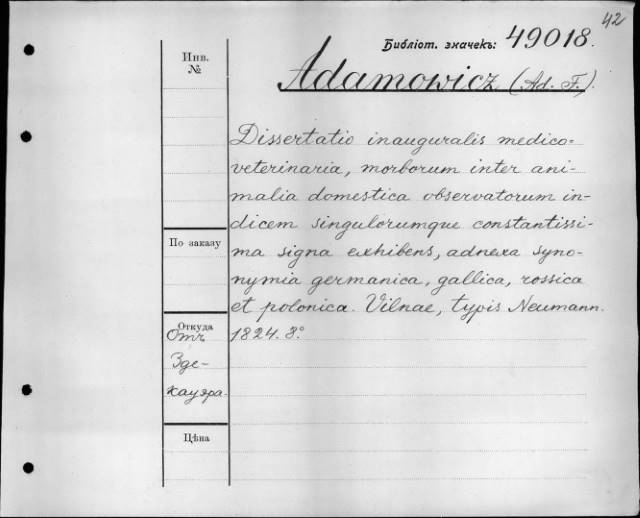 42
Библіот. значекъ: 49018.
Инв.
№
Adamowicz (Ad. F.).
Dissertatio inauguralis medico=
veterinaria, morborum inter ani-
malia domestica observatorum in-
dicem singulorumque constantissi-
ma signa exhibens, adnexa syno-
nymia germanica, gallica, rossica
et polonica. Vilnae, typis Neumann.
1824. 8.°
По заказу
Откуда
Отъ
Зде-
кауера.
Цѣна